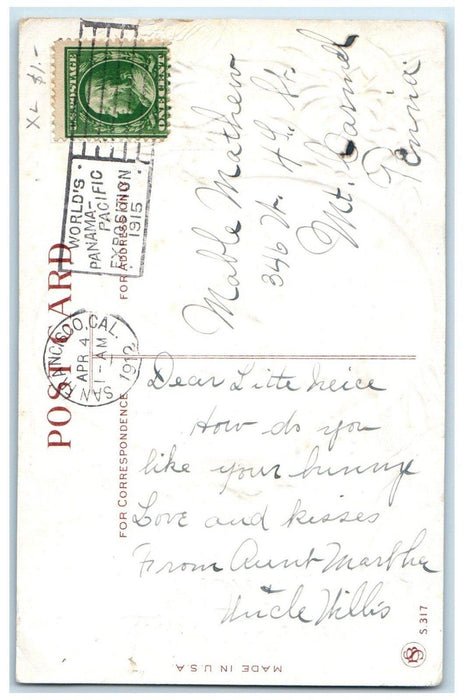 X- $1.-
U.S. POSTAGE
ONE CENT
WORLD'S
PANAMA-
PACIFIC
EXPOSITION
1915
SAN FRANCISCO, CAL.
APR 4
1-AM
1912
POST CARD
FOR ADDRESS ONLY
Mable Mathew
346 W. 4th St
Mt. Carmel
Penna.
FOR CORRESPONDENCE
Dear Litte Neice
How do you
like your bunnye
Love and kisses
From Aunt Martha
Uncle Willis
MADE IN USA
S 317